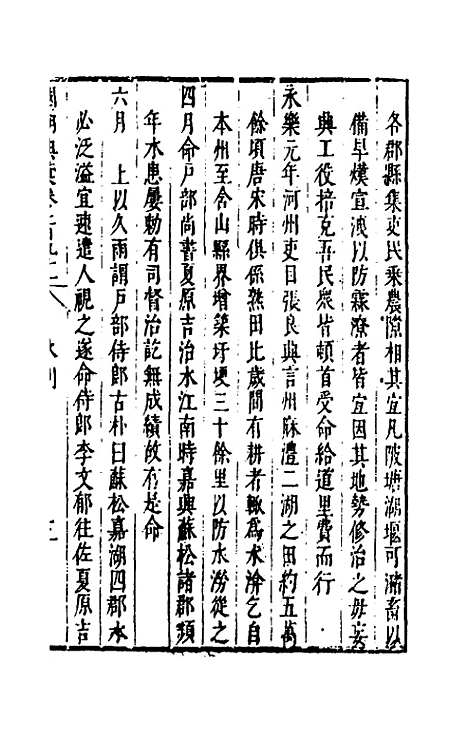 各郡縣集吏民乘農隙相其宜凡陂塘湖堰可瀦畜以
備旱熯宣洩以防霖潦者皆宜因其地勢修治之毋妄
興工役掊克吾民衆皆頓首受命給道里費而行
永樂元年河州吏目張良興言州麻澧二湖之田約五萬
餘頃唐宋時俱係熟田比歲間有耕者輒爲水渰乞自
本州至含山縣界增築圩埂三十餘里以防水澇從之
四月命戶部尚書夏原吉治水江南時嘉興蘇松諸郡頻
年水患屢勅有司督治訖無成績故有是命
六月　上以久雨謂戶部侍郎古朴曰蘇松嘉湖四郡本
必泛溢宜速遣人視之遂命侍郎李文郁往佐夏原吉
國朝典彙卷一百九十
水利